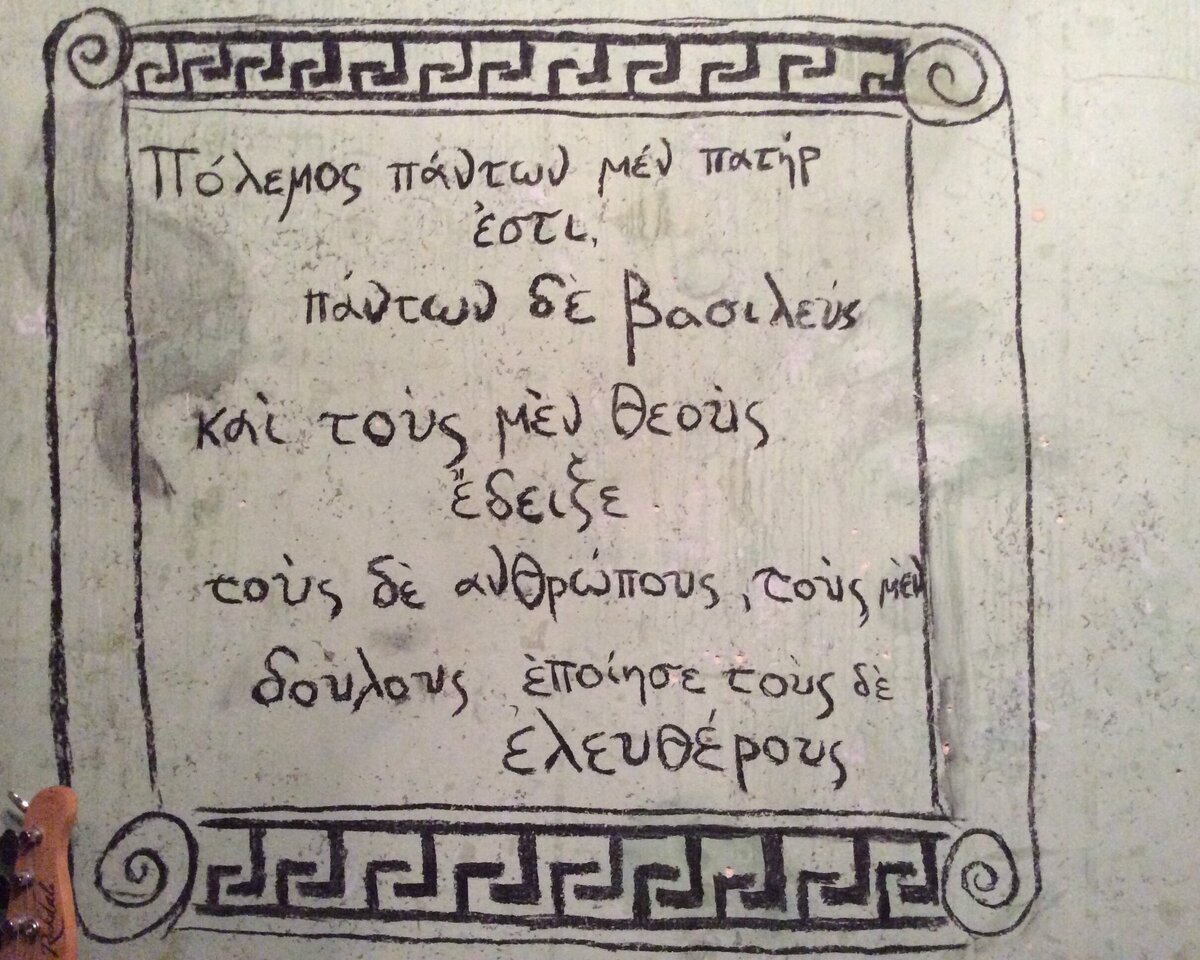 Πόλεμος πάντων μέν πατήρ
ἐστι,
πάντων δὲ βασιλεύς
καὶ τοὺς μὲν θεοὺς
ἔδειξε
τοὺς δὲ ανθρώπους, τοὺς μὲν
δούλους ἐποίησε τοὺς δὲ
ἐλευθέρους